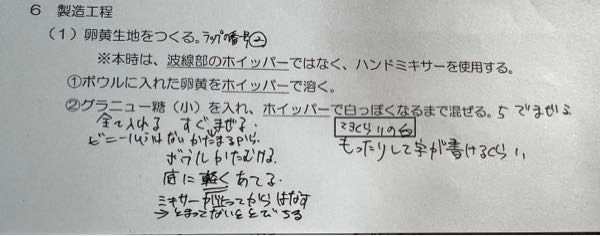 6 製造工程
(1)卵黄生地をつくる。ラップの番号②
※本時は、波線部のホイッパーではなく、ハンドミキサーを使用する。
①ボウルに入れた卵黄をホイッパーで溶く。
②グラニュー糖(小)を入れ、ホイッパーで白っぽくなるまで混ぜる。5でまぜる
全て入れる すぐまぜる。
かたまるから
ボウルかたむける。
底に軽くあてる。
ミキサーが止ってからはなす
→とまってないととびちる
くらいの白
もったりして字が書けるくらい